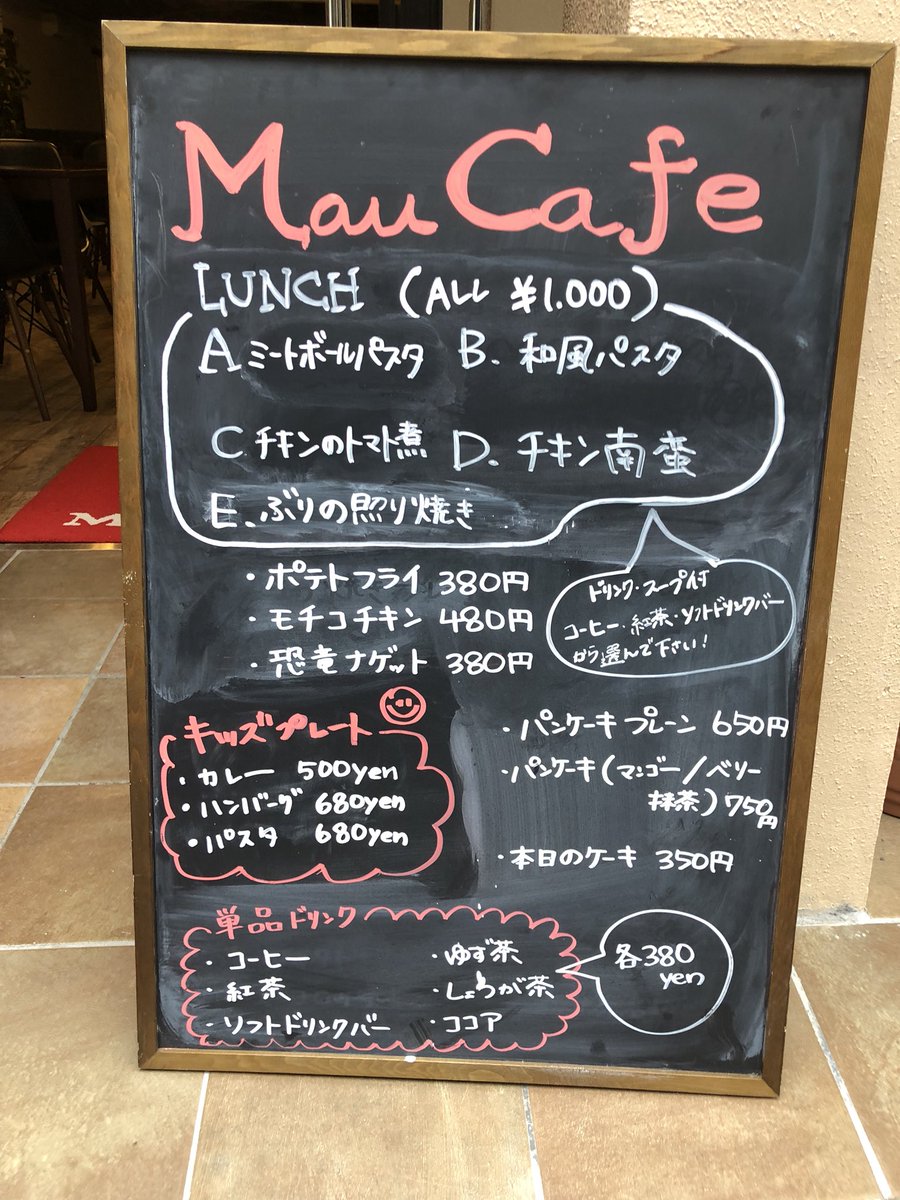 Mau Cafe
LUNCH (ALL ¥1.000)
A ミートボールパスタ B. 和風パスタ
C チキンのトマト煮 D. チキン南蛮
E. ぶりの照り焼き
ドリンク・スープ付
コーヒー・紅茶・ソフトドリンクバー
から選んで下さい!
・ポテトフライ 380円
・モチコチキン 480円
・恐竜ナゲット 380円
キッズプレート
・カレー 500yen
・ハンバーグ 680yen
・パスタ 680yen
・パンケーキ プレーン 650円
・パンケーキ(マンゴー/ベリー
抹茶) 750円
・本日のケーキ 350円
単品ドリンク
・コーヒー
・紅茶
・ソフトドリンクバー
・ゆず茶
・しょうが茶
・ココア
各380
yen
M